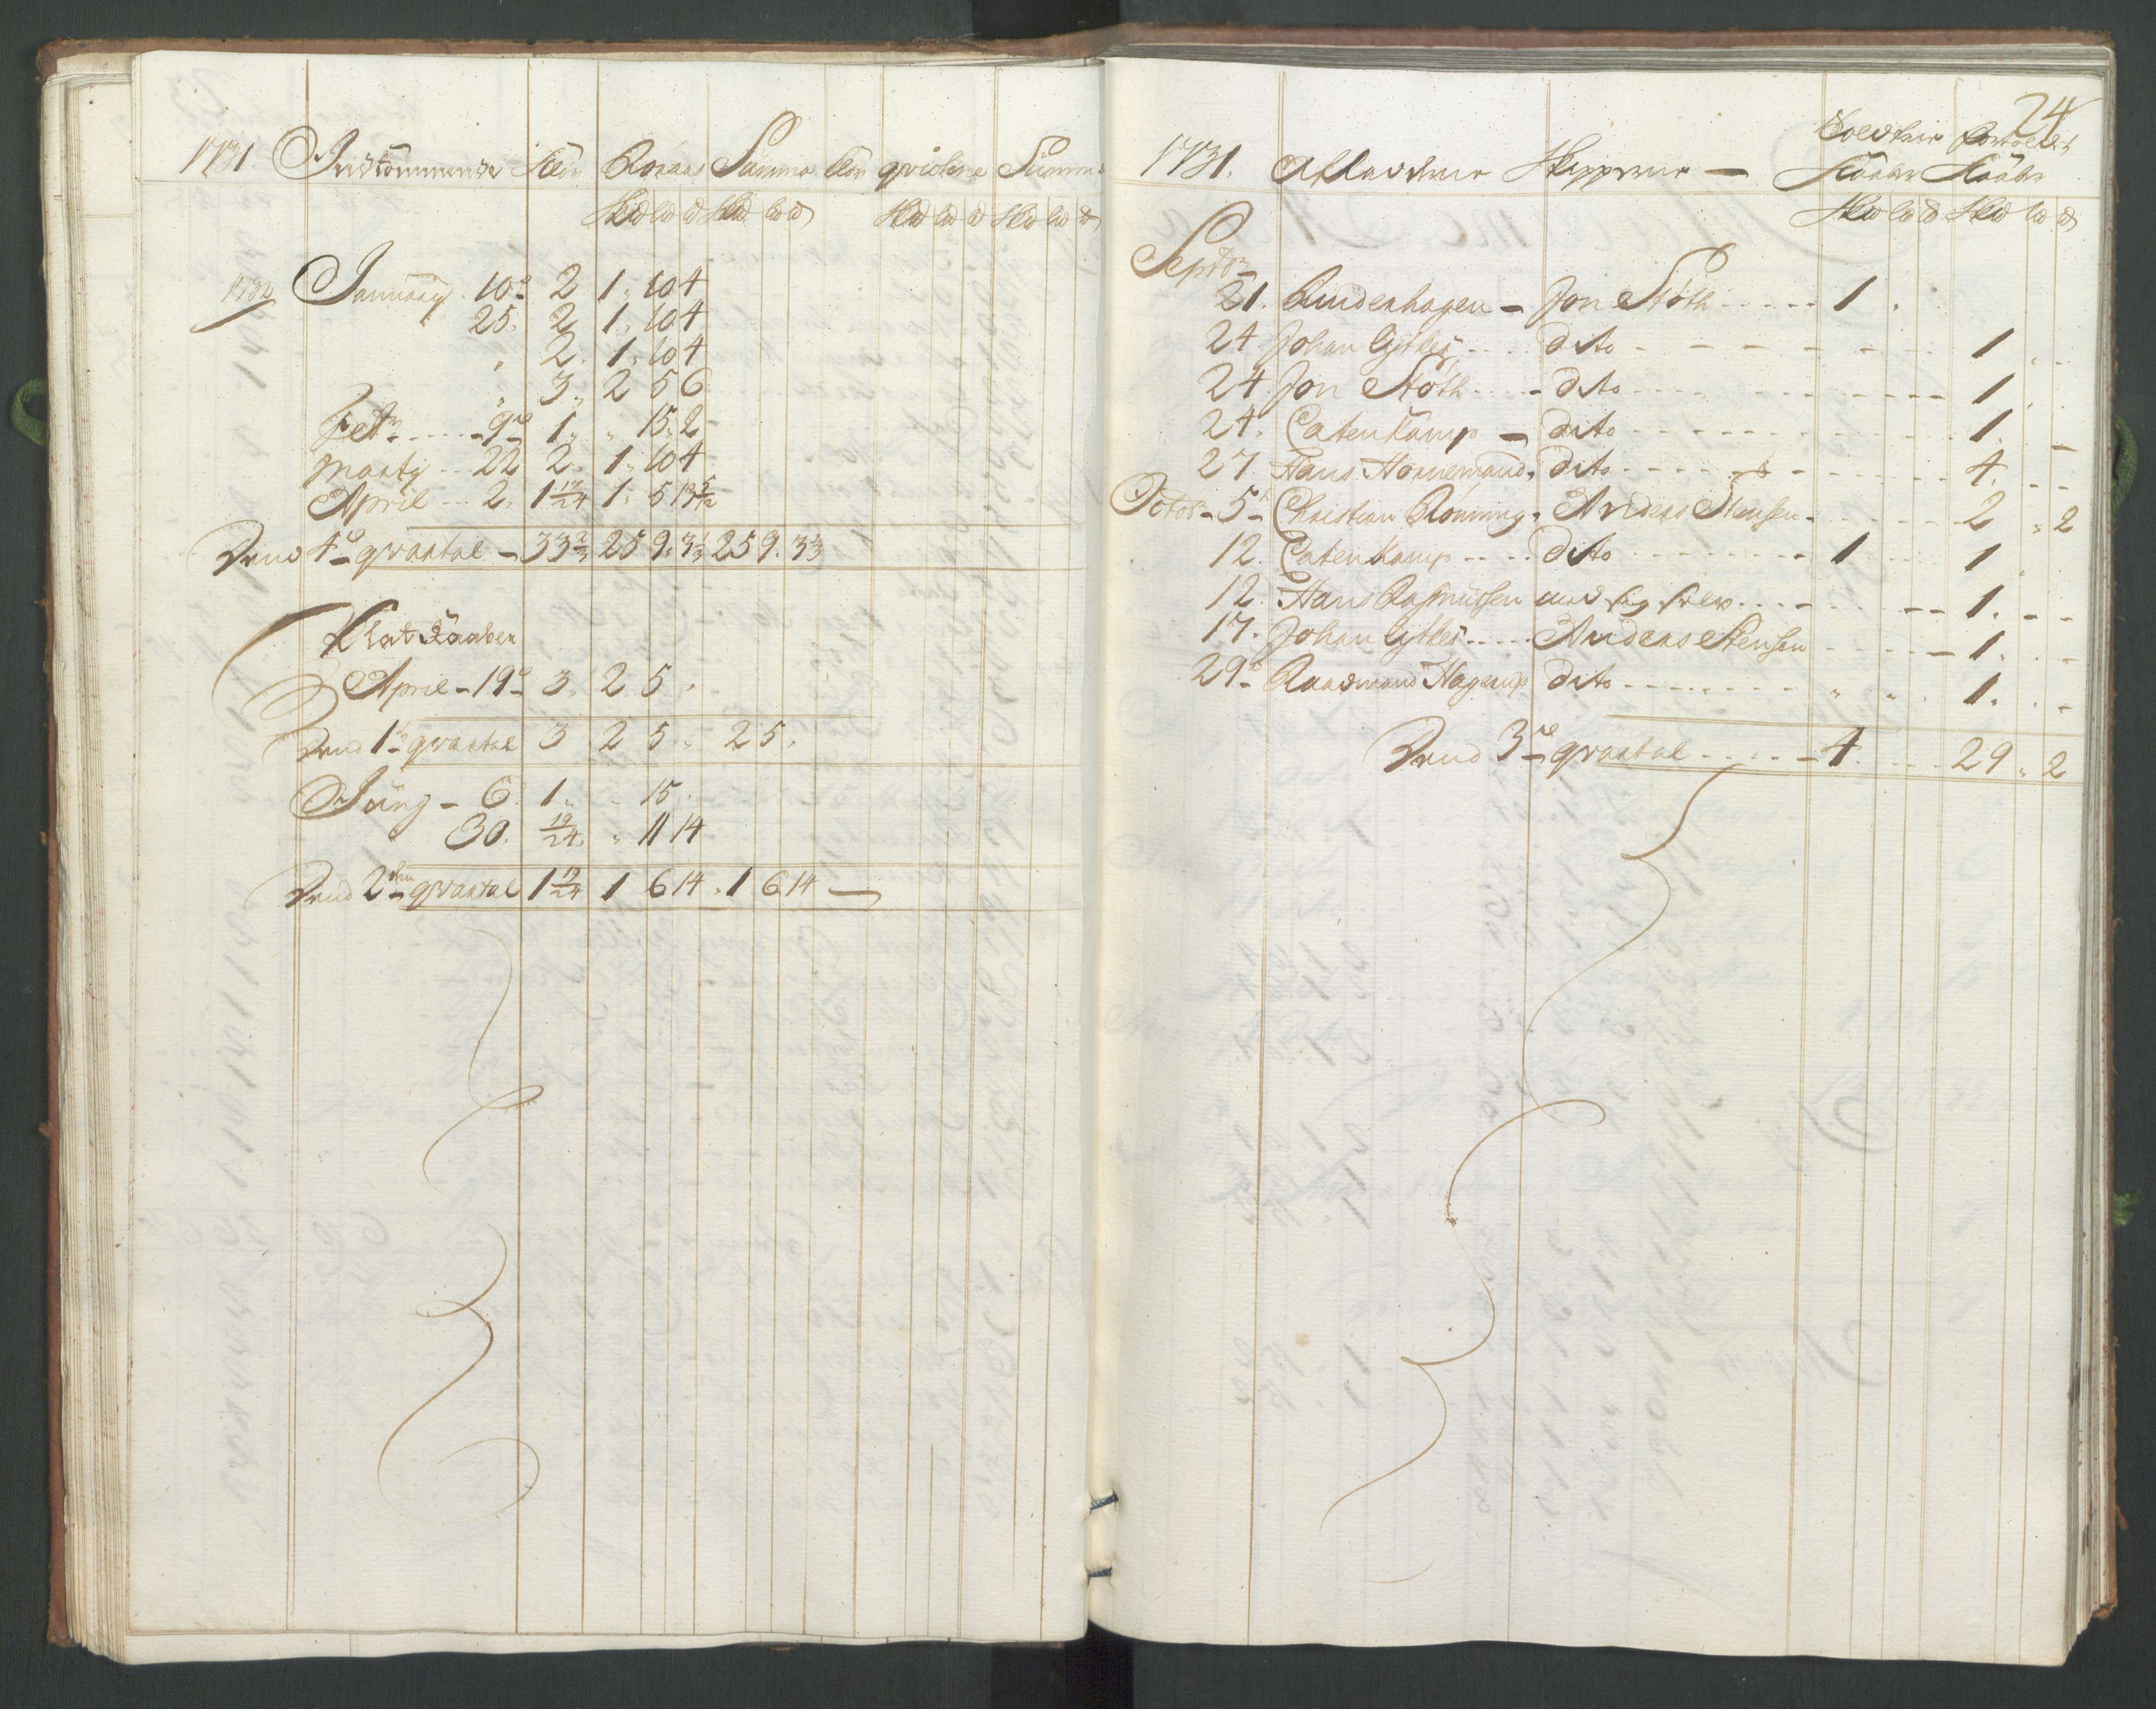 1731. Indkommende Kiør Roraas Summa Kiør qvichne Summa
Skd ld d Skd ld d Skd ld d Skd ld d
1732 January 10de 2 1. 10 4
25. 2 1. 10 4
" 2. 1. 10 4
" 3. 2 5 6
Febr. 9de 1. " 15. 2
Marty 22 2. 1. 10 4
April 2. 1 17/24 1. 5 13 5/12
4de qvartal 33 2/3 25 9. 3 1/3 25 9. 3 1/3
Plat Kaaber
April 19de 3. 2 5.
1te qvartal 3 2 5. 2 5.
Juny 6. 1. 15.
30. 19/24. " 11 14
2den qvartal 1 19/24 1 6 14. 1 6 14
24
1731. Afladere Skippere
Kaaber Kaaber
Skd ld d Skd ld d
Septbr
21. Lindenhagen Jon Stöth 1.
24. Johan dito 1.
24. Jon Stöth dito 1.
24. Catenkamp dito 1.
27. Hans Hornemand. dito 4.
Octobr 5. Christian Rönning. Anders Stensen 2 " 2
12. Catenkamp dito 1 1.
12. Hans Rasmussen ved sig selv 1.
17. Johan Anders Stensen 1.
29de Raadmand Hagerup dito " " 1.
3de qvartal 4 29 " 2